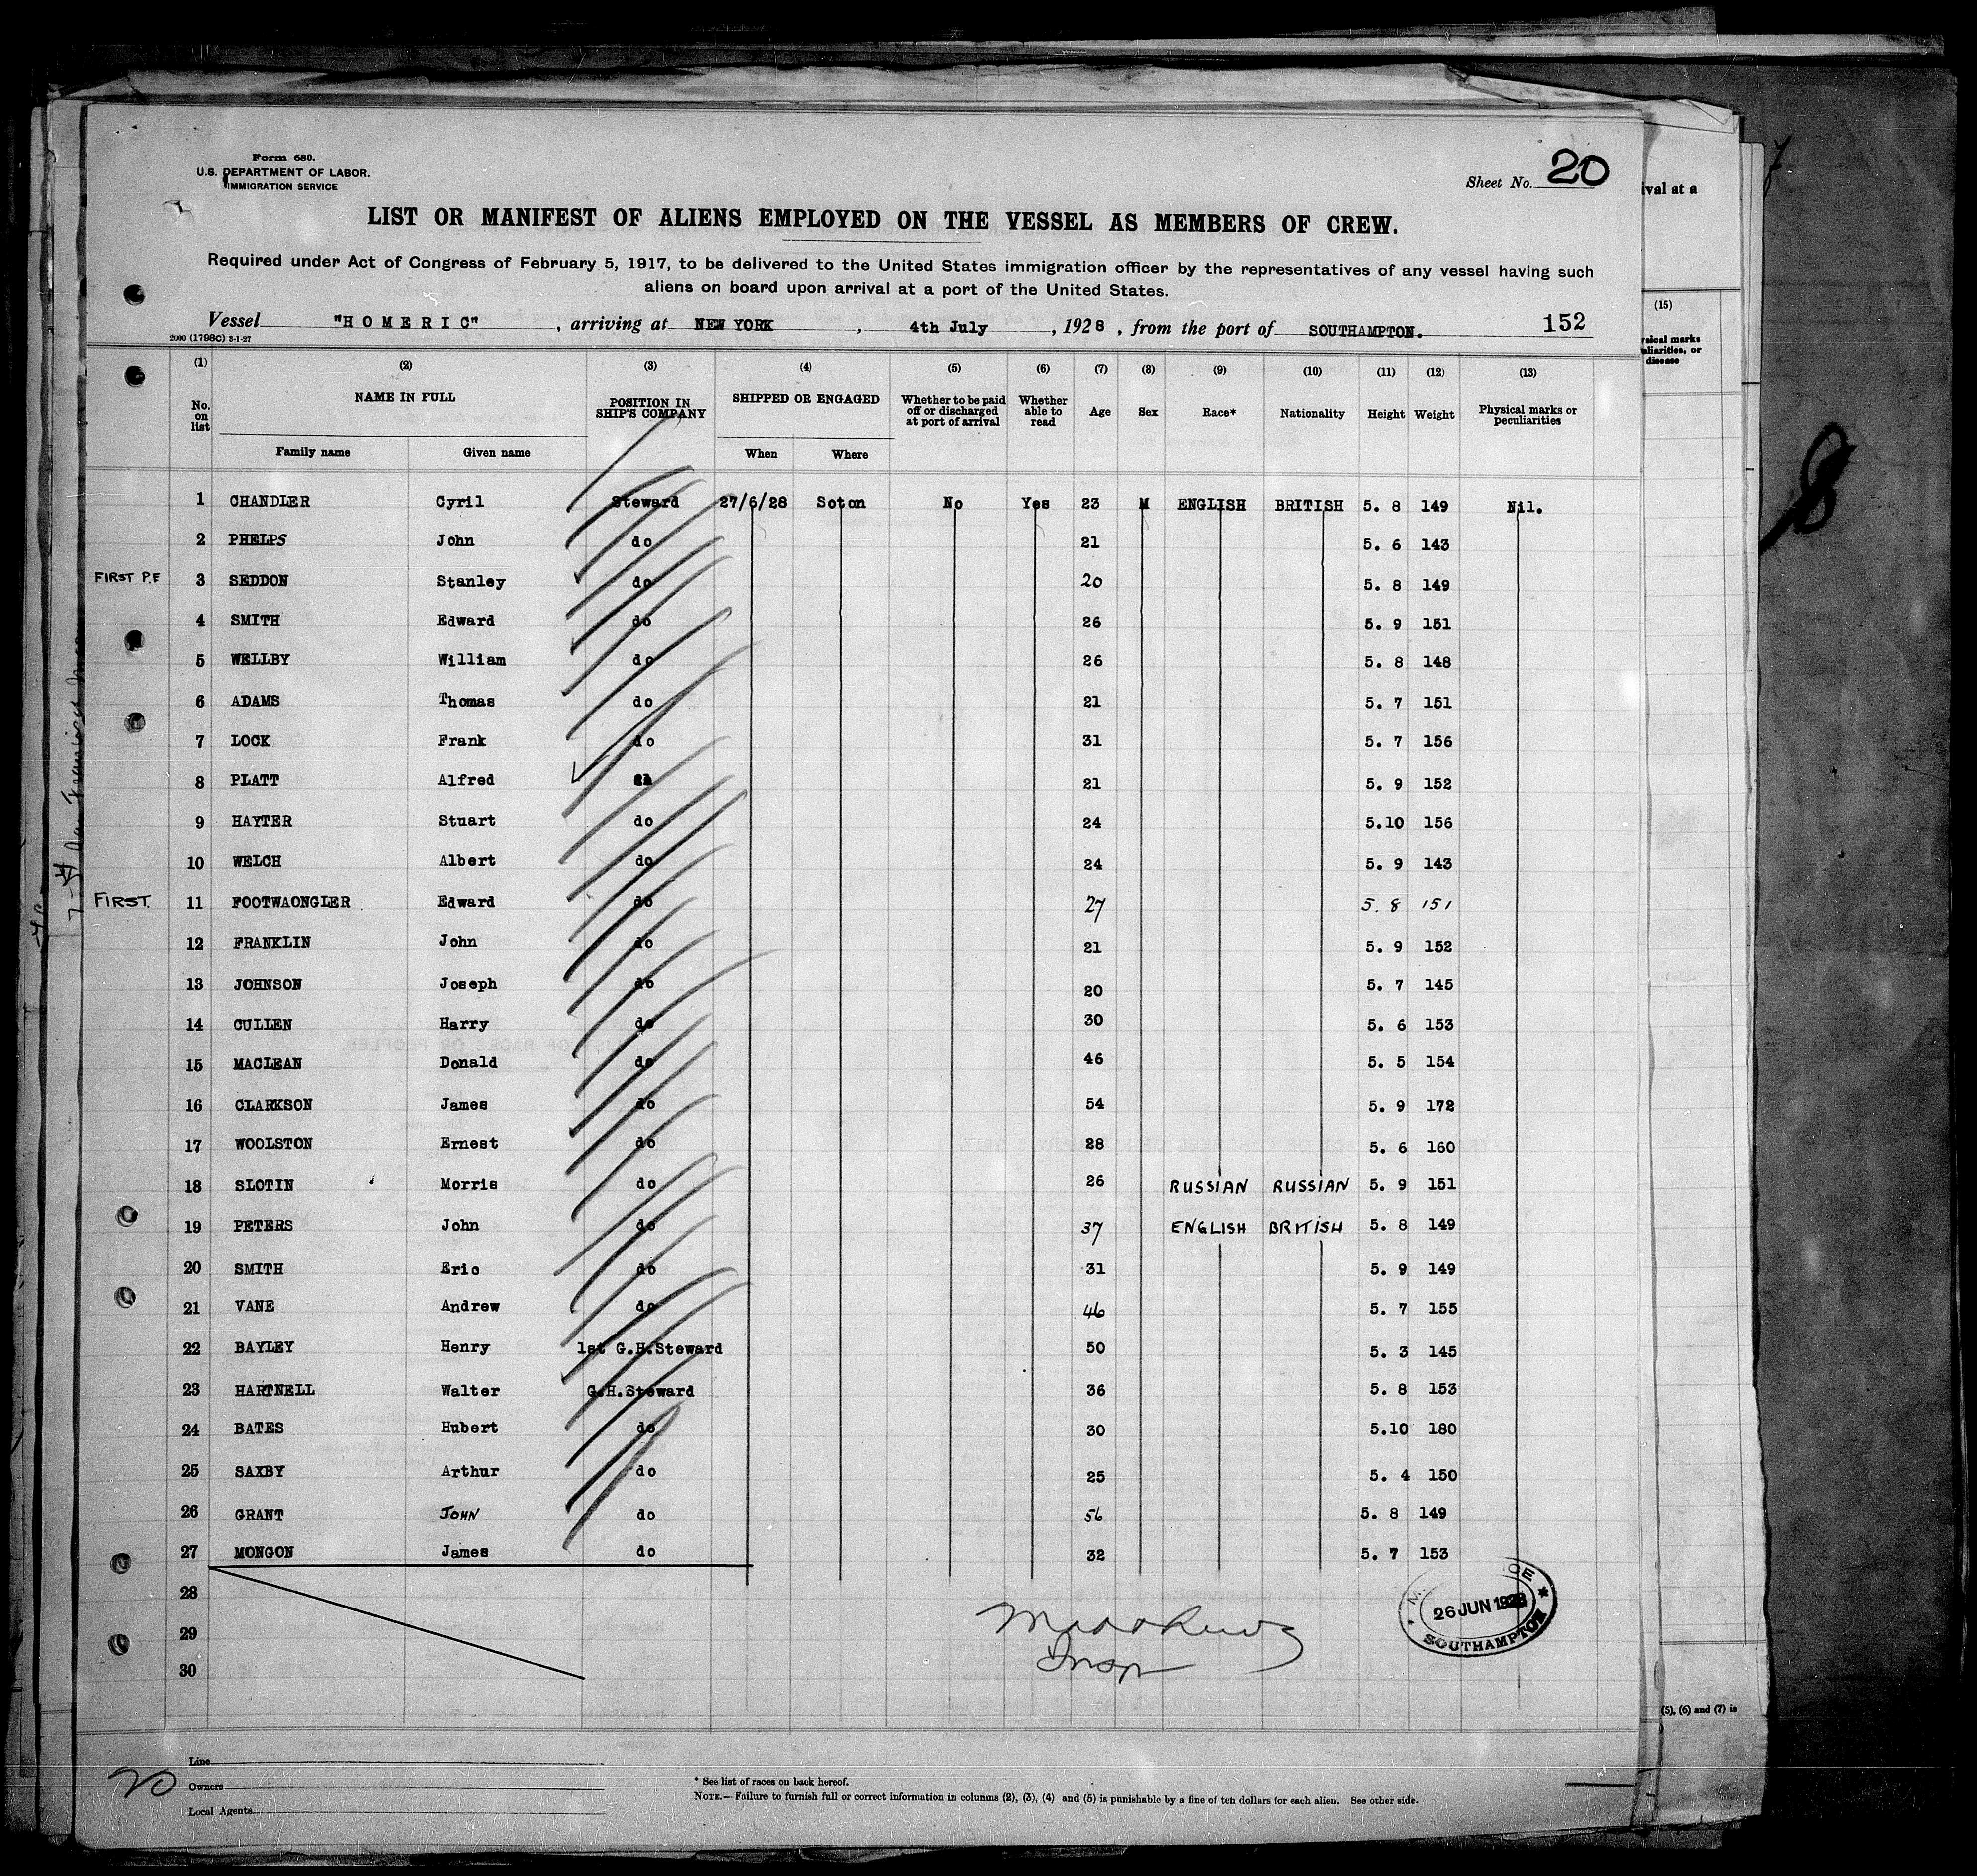 Form 680.
U.S. DEPARTMENT OF LABOR.
IMMIGRATION SERVICE
Sheet No. 20
ival at a
LIST OR MANIFEST OF ALIENS EMPLOYED ON THE VESSEL AS MEMBERS OF CREW.
Required under Act of Congress of February 5, 1917, to be delivered to the United States immigration officer by the representatives of any vessel having such
aliens on board upon arrival at a port of the United States.
Vessel "HOMERIC", arriving at NEW YORK, 4th July, 1928, from the port of SOUTHAMPTON. 152
2000 (1798C) 3-1-27
(1) (2) (3) (4) (5) (6) (7) (8) (9) (10) (11) (12) (13) (15)
No. on list NAME IN FULL POSITION IN SHIP'S COMPANY SHIPPED OR ENGAGED Whether to be paid off or discharged at port of arrival Whether able to read Age Sex Race* Nationality Height Weight Physical marks or peculiarities
Family name Given name When Where
sical marks
uliarities, or
disease
1 CHANDLER Cyril Steward 27/6/28 Soton No Yes 23 M ENGLISH BRITISH 5. 8 149 Nil.
2 PHELPS John do 21 5. 6 143
FIRST P.F 3 SEDDON Stanley do 20 5. 8 149
4 SMITH Edward do 26 5. 9 151
5 WELLBY William do 26 5. 8 148
6 ADAMS Thomas do 21 5. 7 151
7 LOCK Frank do 31 5. 7 156
8 PLATT Alfred 21 5. 9 152
9 HAYTER Stuart do 24 5.10 156
10 WELCH Albert do 24 5. 9 143
FIRST. 11 FOOTWAONGLER Edward do 27 5. 8 151
12 FRANKLIN John do 21 5. 9 152
13 JOHNSON Joseph do 20 5. 7 145
14 CULLEN Harry do 30 5. 6 153
15 MACLEAN Donald do 46 5. 5 154
16 CLARKSON James do 54 5. 9 172
17 WOOLSTON Ernest do 28 5. 6 160
18 SLOTIN Morris do 26 RUSSIAN RUSSIAN 5. 9 151
19 PETERS John do 37 ENGLISH BRITISH 5. 8 149
20 SMITH Eric do 31 5. 9 149
21 VANE Andrew do 46 5. 7 155
22 BAYLEY Henry 1st G.H.Steward 50 5. 3 145
23 HARTNELL Walter G.H.Steward 36 5. 8 153
24 BATES Hubert do 30 5.10 180
25 SAXBY Arthur do 25 5. 4 150
26 GRANT JOHN do 56 5. 8 149
27 MONGON James do 32 5. 7 153
28
29
30
26 JUN 1928
SOUTHAMPTON
Insp
(5), (6) and (7) is
Line
Owners
Local Agents
20
* See list of races on back hereof.
NOTE.—Failure to furnish full or correct information in columns (2), (3), (4) and (5) is punishable by a fine of ten dollars for each alien. See other side.
8